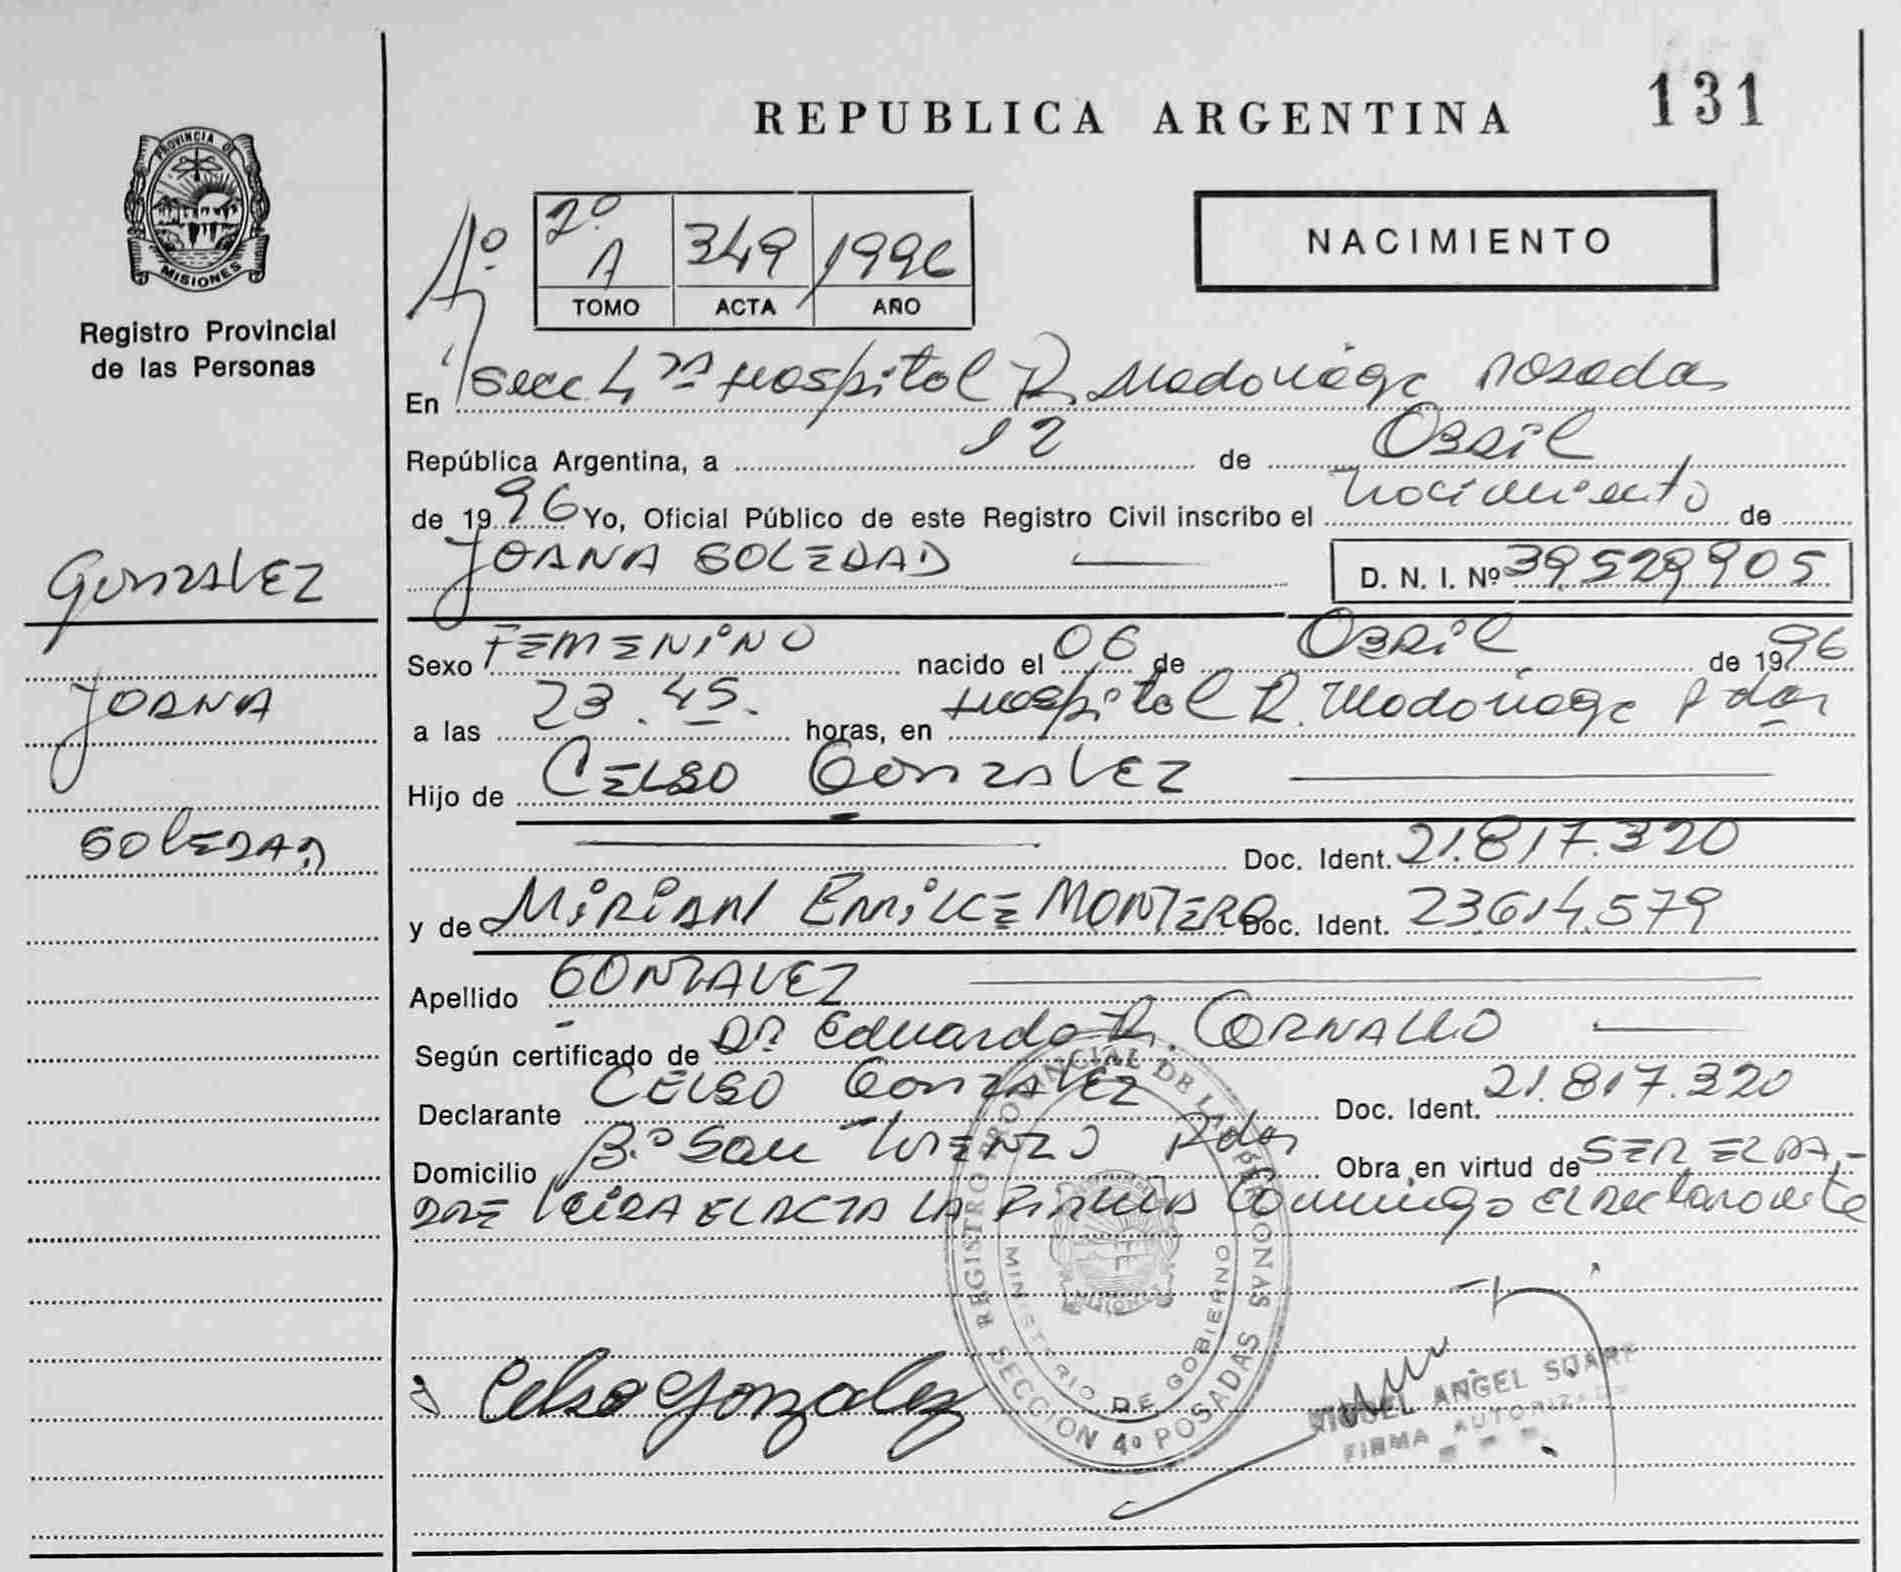 REPUBLICA ARGENTINA
131
PROVINCIA DE
MISIONES
Registro Provincial
de las Personas
2º
A 349 1996
TOMO ACTA AÑO
NACIMIENTO
En Secc 4ta Hospital R. Madariaga Posadas
República Argentina, a 12 de Abril
de 1996 Yo, Oficial Público de este Registro Civil inscribo el nacimiento de
JOANA SOLEDAD
D. N. I. Nº 39.529.905
GONZALEZ
JOANA
SOLEDAD
Sexo FEMENINO nacido el 06 de ABRIL de 1996
a las 23.45. horas, en Hospital R. Madariaga Pdas
Hijo de CELSO GONZALEZ
Doc. Ident. 21.817.320
y de MIRIAM EMILCE MONTERO Doc. Ident. 23.614.579
Apellido GONZALEZ
Según certificado de DR. Eduardo R.
Declarante CELSO GONZALEZ Doc. Ident. 21.817.320
Domicilio Bº San LORENZO Pdas Obra en virtud de SER EL PA-
DRE LEIDA EL ACTA LA FIRMA Conmigo el declarante
REGISTRO PROVINCIAL DE LAS PERSONAS
MINISTERIO DE GOBIERNO
SECCION 4º POSADAS
Celso Gonzalez
MIGUEL ANGEL
FIRMA AUTORIZADA